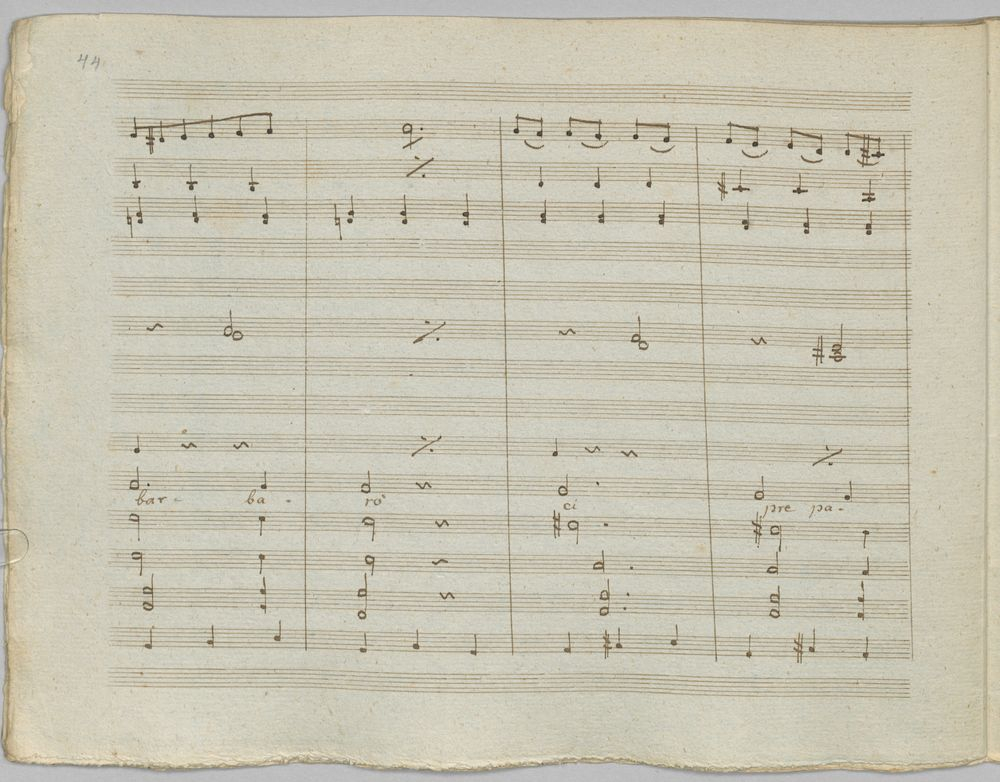 44
bar - ba - rò ci pre pa -